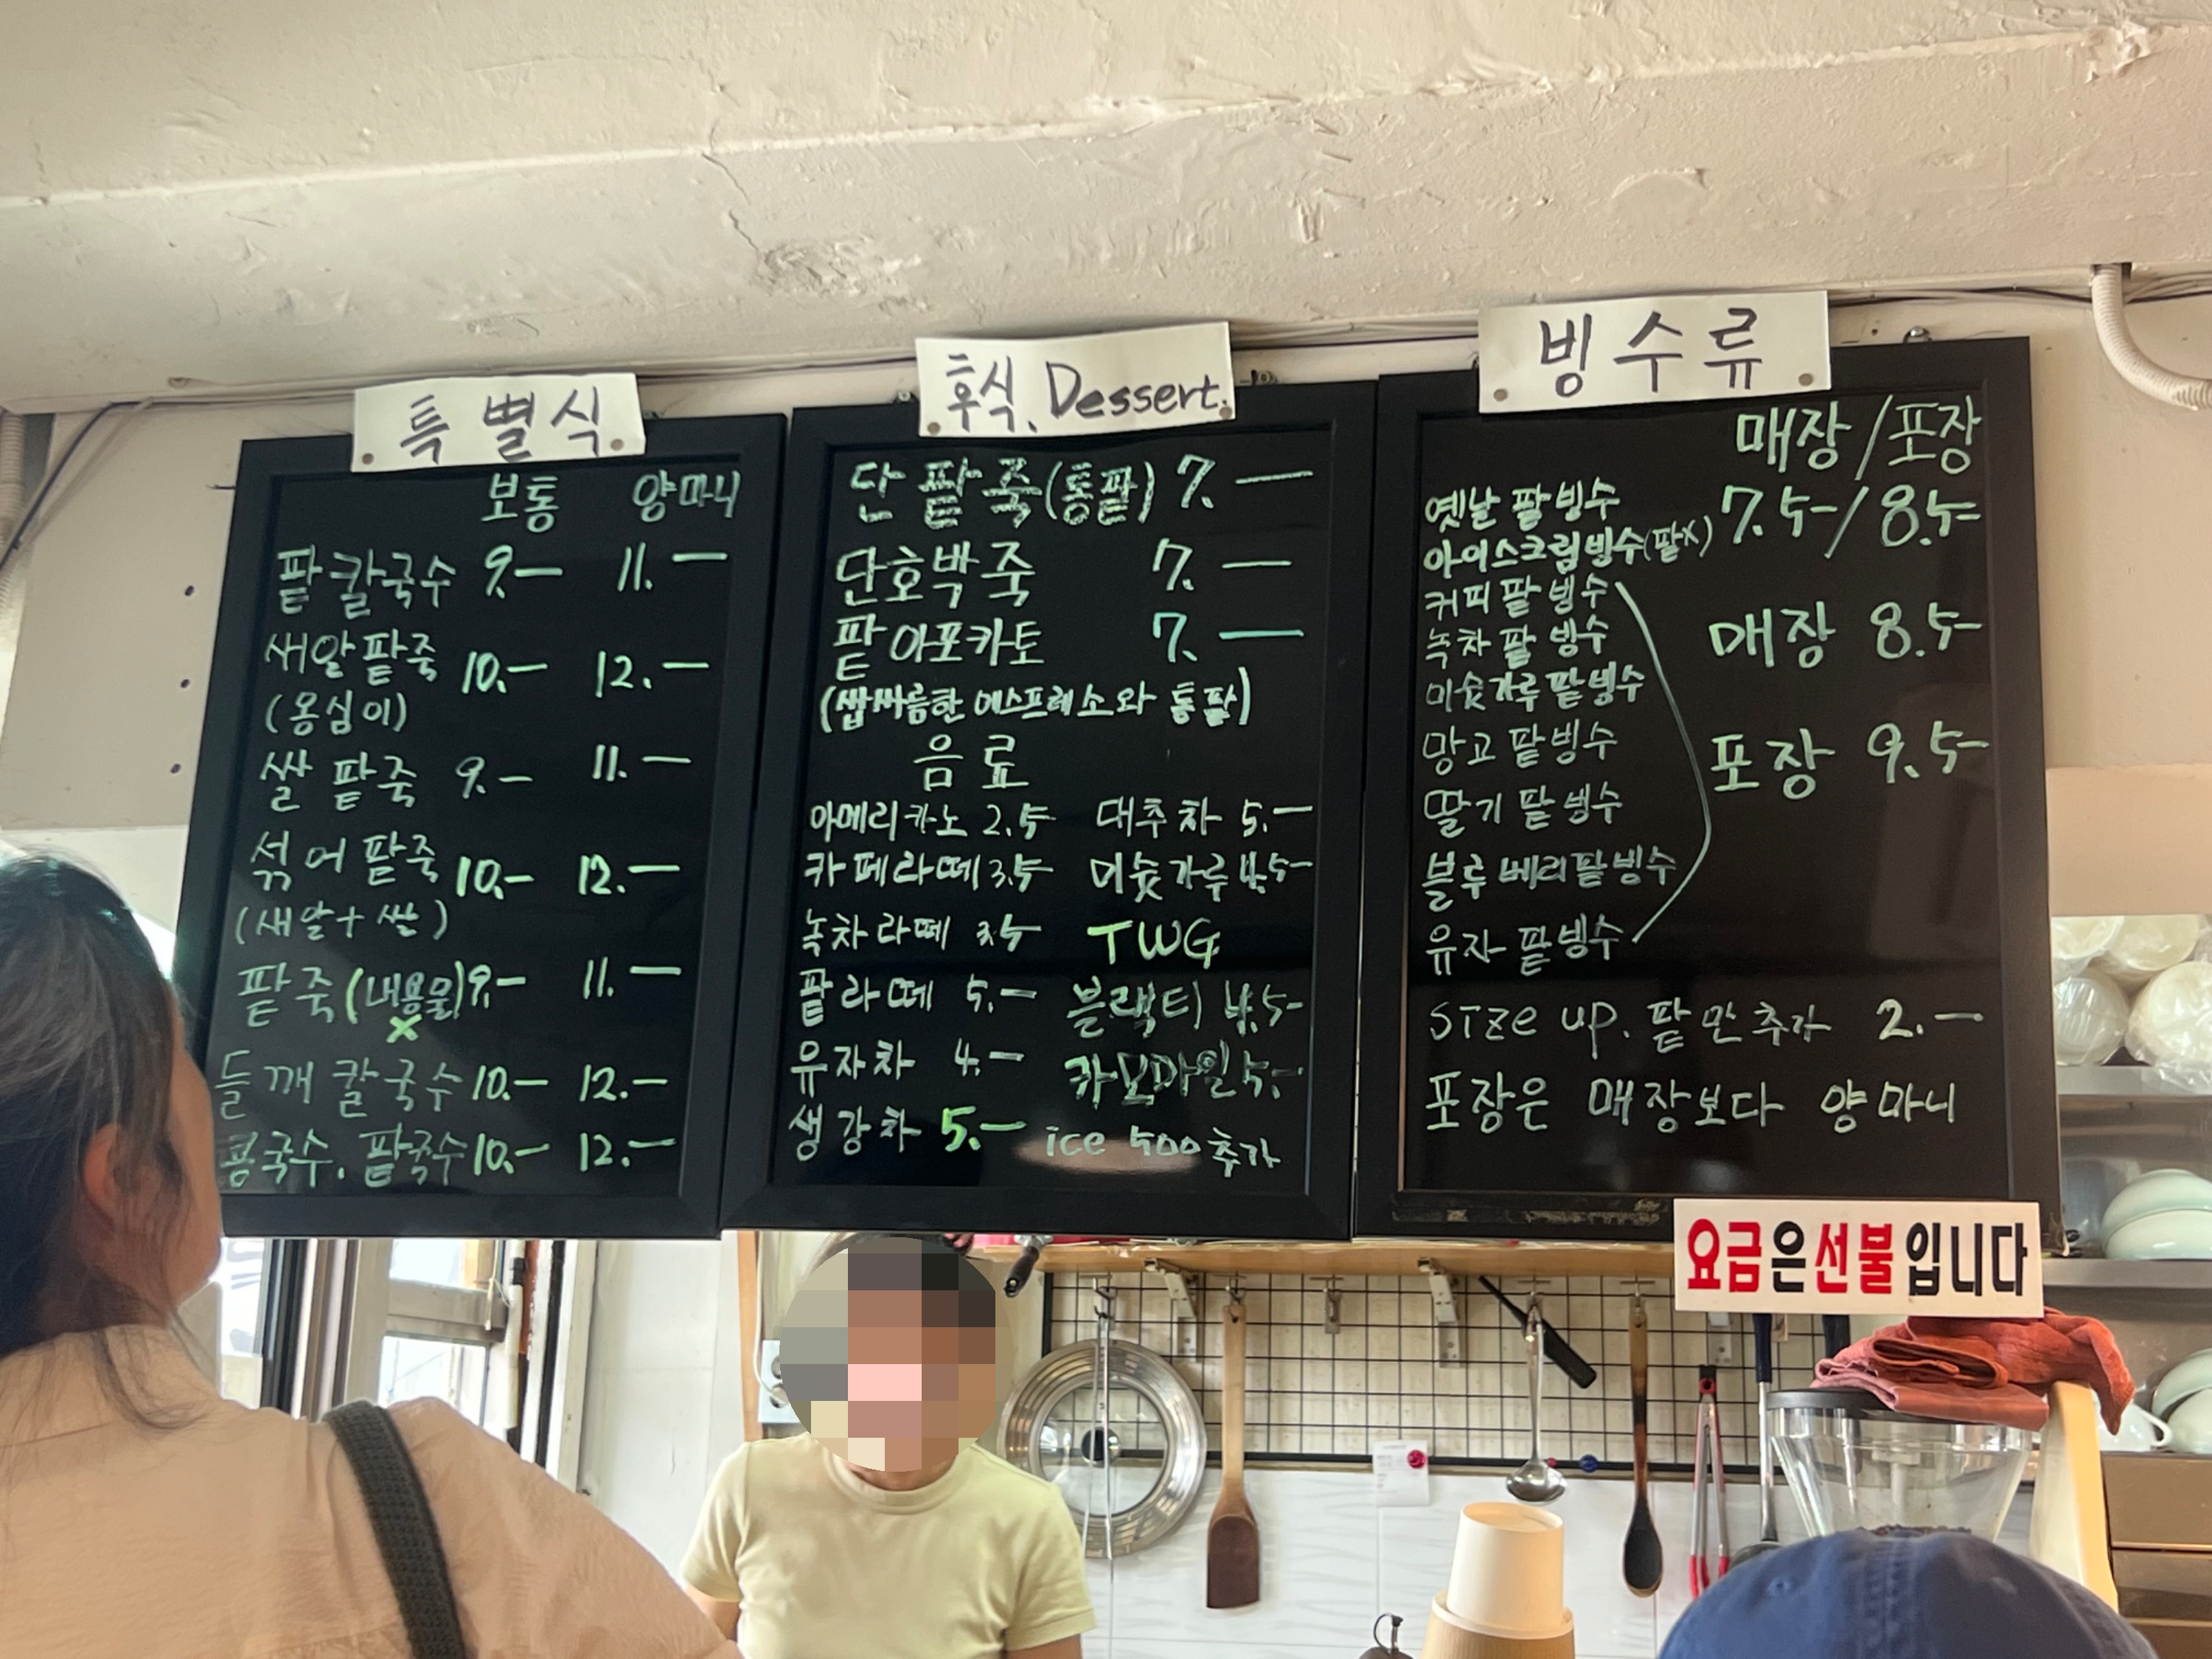 특별식
보통 양마니
팥칼국수 9.— 11.—
새알팥죽 10.— 12.—
(옹심이)
쌀팥죽 9.— 11.—
섞어팥죽 10.— 12.—
(새알+쌀)
팥죽(내용물) 9.— 11.—
X
들깨칼국수 10.— 12.—
콩국수. 팥국수 10.— 12.—
후식. Dessert.
단팥죽(통팥) 7.—
단호박죽 7.—
팥아포카토 7.—
(쌉싸름한 에스프레소와 통팥)
음료
아메리카노 2.5 대추차 5.—
카페라떼 3.5 미숫가루 4.5-
녹차라떼 3.5 TWG
팥라떼 5.— 블랙티 4.5-
유자차 4.— 카모마일 5.-
생강차 5.— ice 500 추가
빙수류
매장/포장
옛날팥빙수 7.5-/8.5-
아이스크림빙수(팥X)
커피팥빙수
녹차팥빙수 매장 8.5-
미숫가루팥빙수
망고팥빙수 포장 9.5-
딸기팥빙수
블루베리팥빙수
유자팥빙수
size up. 팥만추가 2.—
포장은 매장보다 양마니
요금은선불입니다